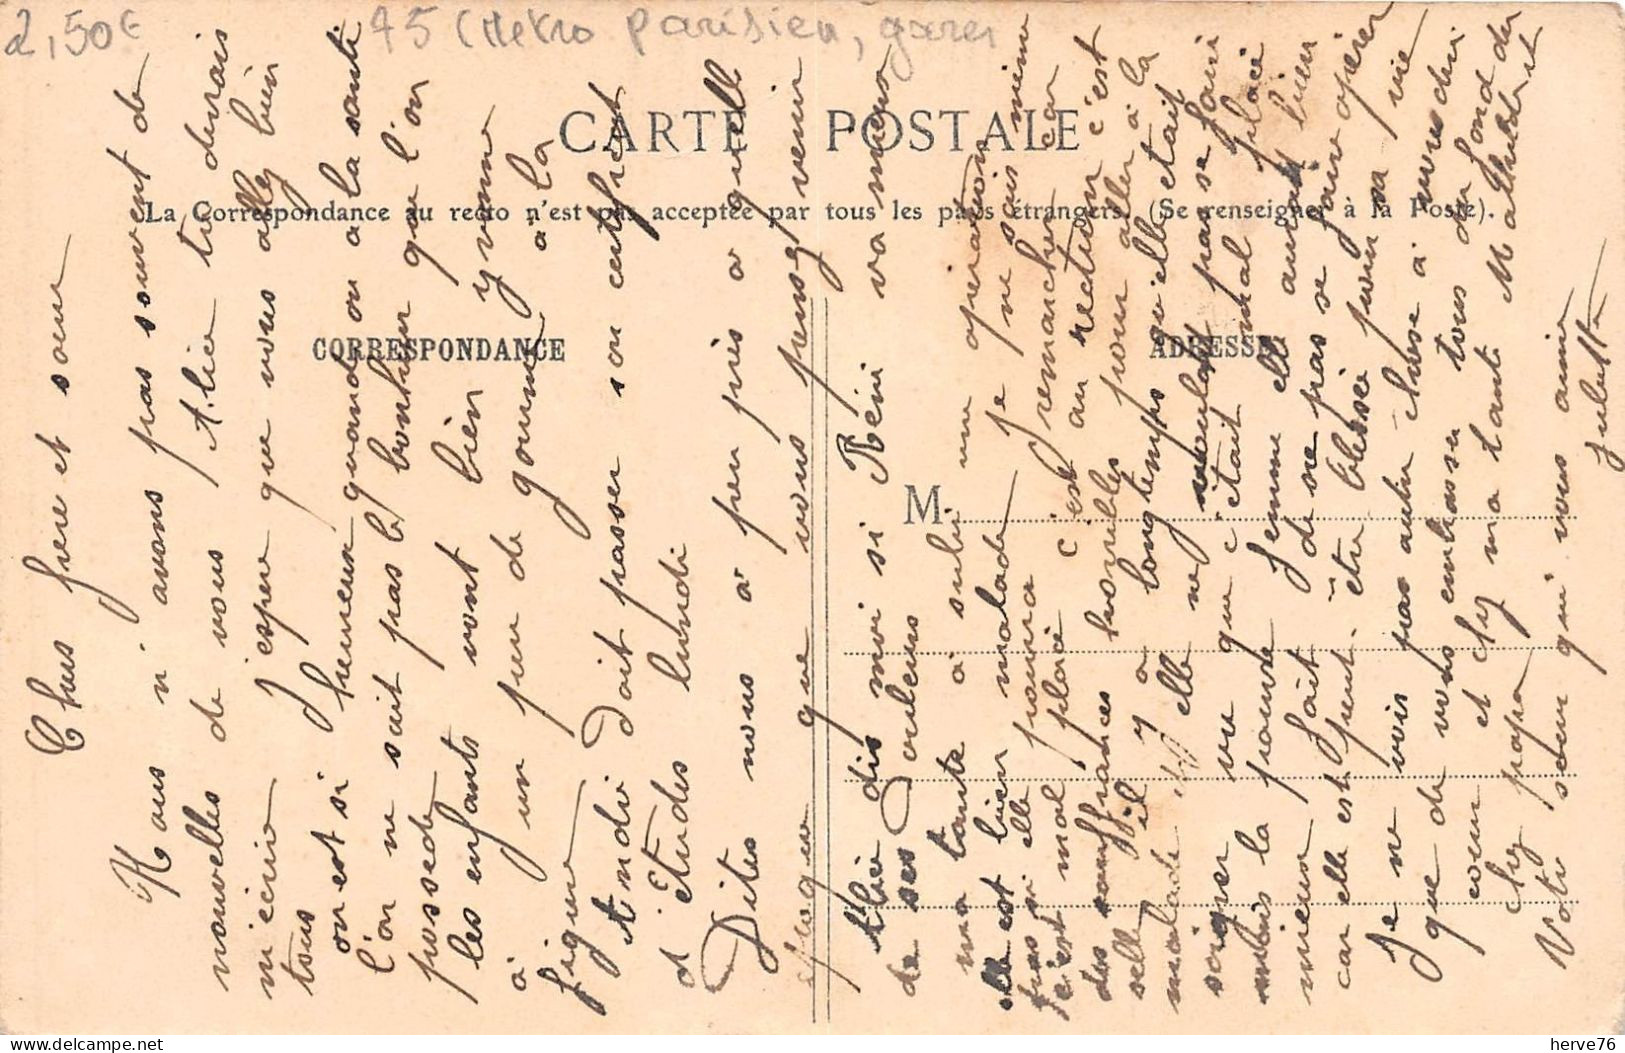 2,50€
75 (Metro parisien, gares
CARTE POSTALE
La Correspondance au recto n'est pas acceptée par tous les pays étrangers. (Se renseigner à la Poste).
CORRESPONDANCE
ADRESSE
M
Chers frere et sœur
Nous n'avons pas souvent de
nouvelles de vous Alice tu devrais
m'écrire J'espere que vous allez bien
tous
on est si heureux quand on a la santé
l'on ne sait pas le bonheur que l'on
possede
les enfants vont bien yvonne
à un peu de gourme à la
figure
Andre doit passer son certificat
d'Etudes lundi
Dites nous a peu près a quelle
époque que vous pensez venir
Alice dis moi si Réné va mieux
de ses douleurs
ma tante à subi une opération
elle est bien malade je ne sais même
pas si elle pourra remarcher car
c'est mal placé c'est au rection c'est
des souffrances horribles pour aller à la
selle il y a longtemps qu'elle était
malade elle ne voulait pas se faire
soigner vu que c'était mal placé
mais la pauvre femme elle aurait bien
mieux fait de ne pas se faire opérer
car elle est peut-être blessée pour sa vie
Je ne vois pas autre chose à vous dire
que de vous embrasser tous du fond du
cœur et chez ma tante Mathilde et
chez papa
Votre sœur qui vous aime
Juliette
herve76
Delcampe.net